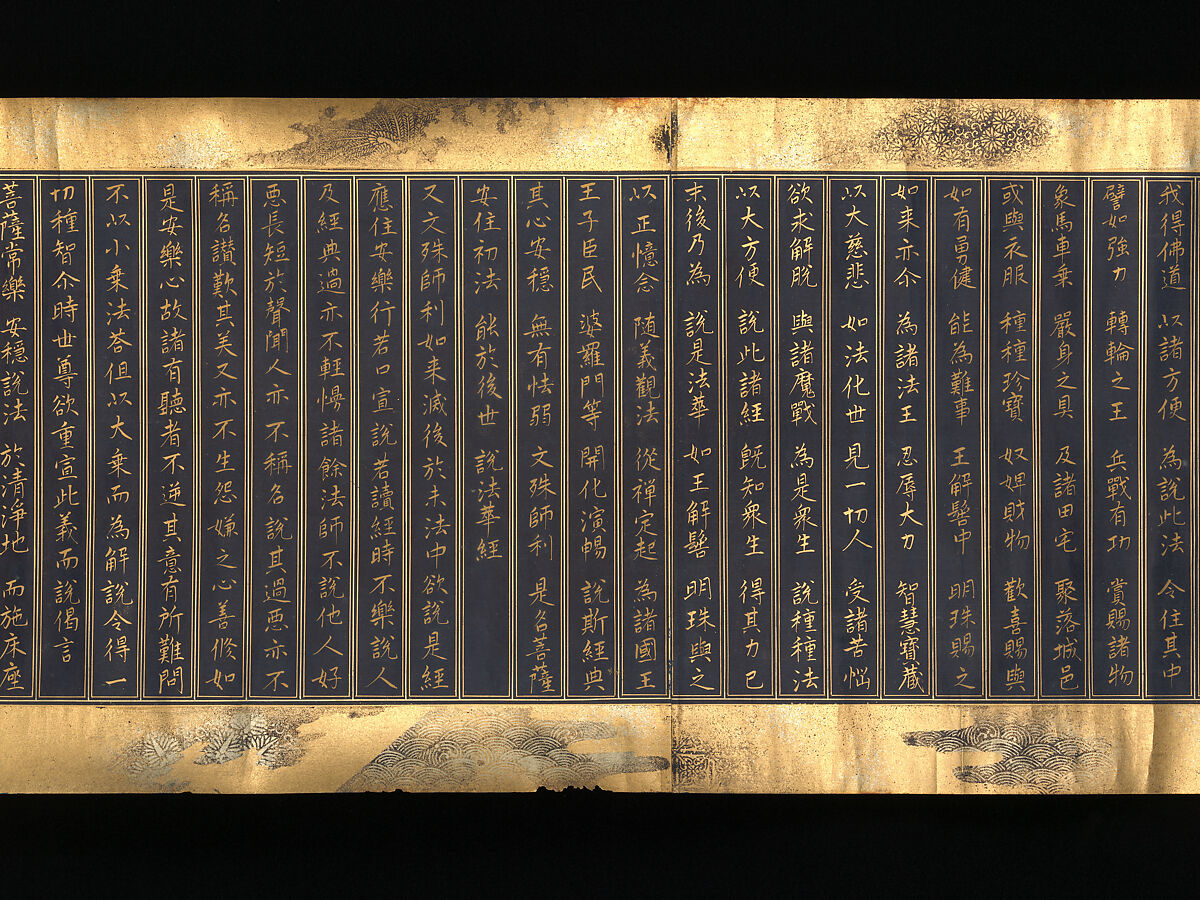 我得佛道 以諸方便 為說此法 令住其中
譬如強力 轉輪之王 兵戰有功 賞賜諸物
象馬車乗 嚴身之具 及諸田宅 聚落城邑
或與衣服 種種珍寶 奴婢財物 歡喜賜與
如有勇健 能為難事 王解髻中 明珠賜之
如来亦尒 為諸法王 忍辱大力 智慧寶藏
以大慈悲 如法化世 見一切人 受諸苦惱
欲求解脫 與諸魔戰 為是衆生 說種種法
以大方便 說此諸經 既知衆生 得其力已
末後乃為 說是法華 如王解髻 明珠與之
以正憶念 随義觀法 從禅定起 為諸國王
王子臣民 婆羅門等 開化演暢 說斯經典
其心安穏 無有怯弱 文殊師利 是名菩薩
安住初法 能於後世 說法華經
又文殊師利如来滅後於末法中欲說是經
應住安樂行若口宣說若讀經時不樂說人
及經典過亦不輕慢諸餘法師不說他人好
悪長短於聲聞人亦不稱名說其過悪亦不
稱名讃歎其美又亦不生怨嫌之心善修如
是安樂心故諸有聽者不逆其意有所難問
不以小乗法荅但以大乗而為解說令得一
切種智尒時世尊欲重宣此義而說偈言
菩薩常樂 安穏說法 於清淨地 而施床座